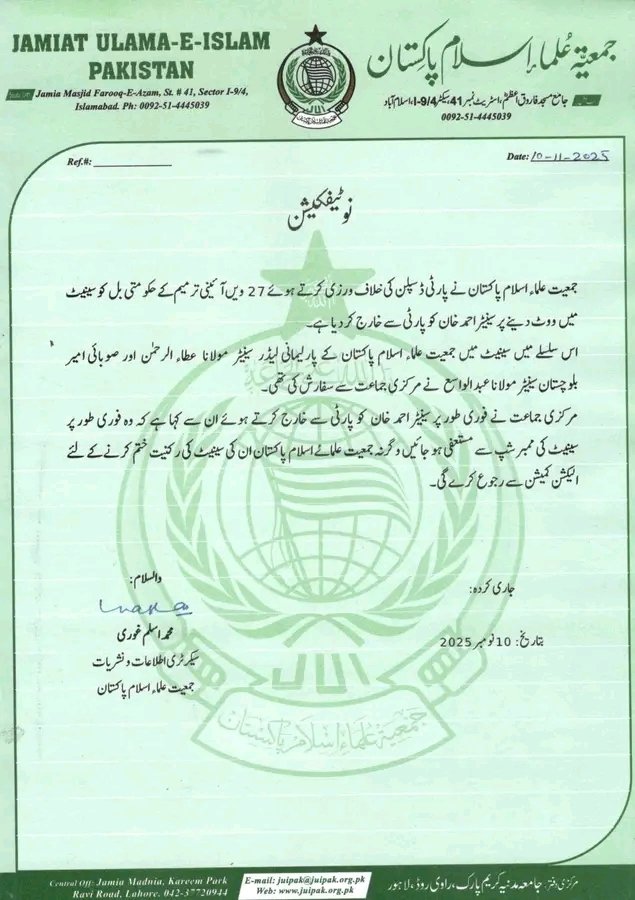 JAMIAT ULAMA-E-ISLAM
PAKISTAN
Jamia Masjid Farooq-E-Azam, St. # 41, Sector I-9/4,
Islamabad. Ph: 0092-51-4445039
جمعیۃ علماء اسلام پاکستان
جامع مسجد فاروق اعظم، اسٹریٹ نمبر 41، سیکٹر I-9/4، اسلام آباد
0092-51-4445039
Ref.#:
Date: 10-11-2025
نوٹیفکیشن
جمعیت علماء اسلام پاکستان نے پارٹی ڈسپلن کی خلاف ورزی کرتے ہوئے 27 ویں آئینی ترمیم کے حکومتی بل کو سینیٹ
میں ووٹ دینے پر سینیٹر احمد خان کو پارٹی سے خارج کر دیا ہے۔
اس سلسلے میں سینیٹ میں جمعیت علماء اسلام پاکستان کے پارلیمانی لیڈر سینیٹر مولانا عطاء الرحمٰن اور صوبائی امیر
بلوچستان سینیٹر مولانا عبدالواسع نے مرکزی جماعت سے سفارش کی تھی۔
مرکزی جماعت نے فوری طور پر سینیٹر احمد خان کو پارٹی سے خارج کرتے ہوئے ان سے کہا ہے کہ وہ فوری طور پر
سینیٹ کی ممبر شپ سے مستعفی ہو جائیں وگرنہ جمعیت علمائے اسلام پاکستان ان کی سینیٹ کی رکنیت ختم کرنے کے لئے
الیکشن کمیشن سے رجوع کرے گی۔
جاری کردہ:
والسلام:
محمد اسلم غوری
سیکرٹری اطلاعات و نشریات
جمعیت علماء اسلام پاکستان
بتاریخ: 10 نومبر 2025
جمعیۃ علماء اسلام پاکستان
Central Off: Jamia Madnia, Kareem Park
Ravi Road, Lahore. 042-37720944
E-mail: juipak@juipak.org.pk
Web: www.juipak.org.pk
مرکزی دفتر: جامعہ مدنیہ کریم پارک، راوی روڈ، لاہور